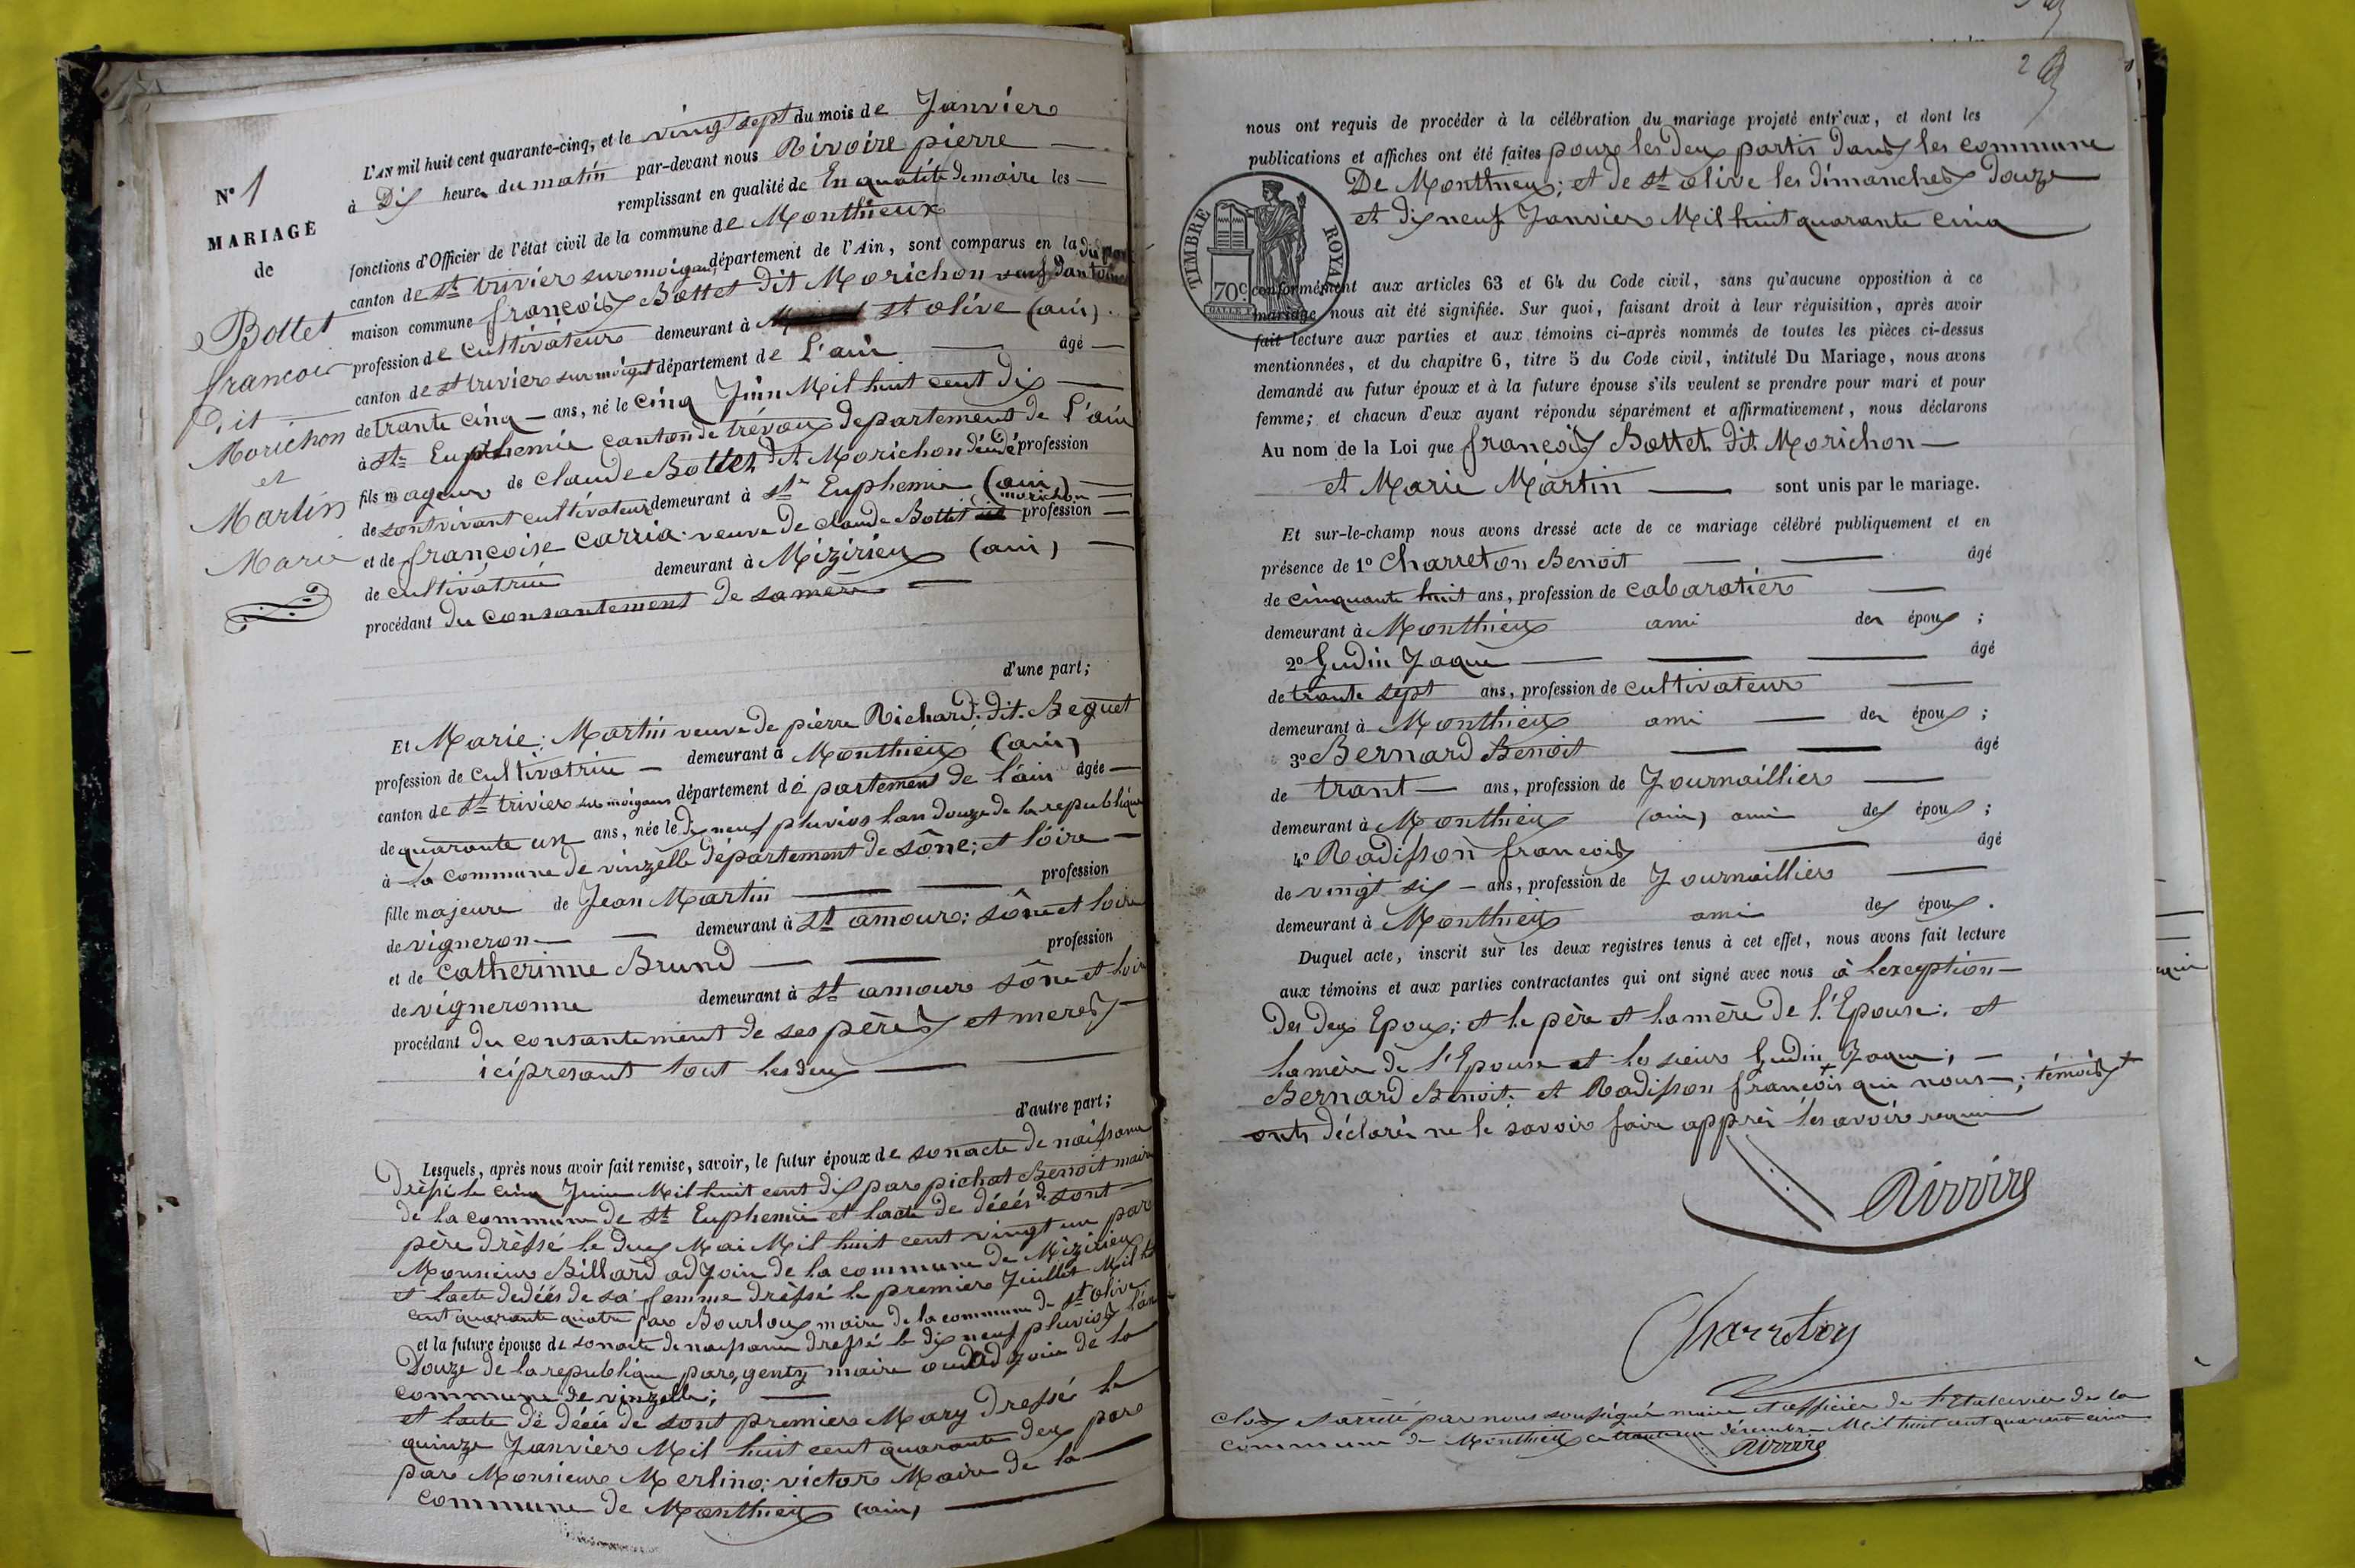 N° 1
MARIAGE
de
Bottet
francois
dit
Morichon
et
Martin
Marie
L'AN mil huit cent quarante-cinq, et le vingt sept du mois de Janvier
à Dix heures du matin par-devant nous Rivoire pierre
remplissant en qualité de En qualité de maire les
fonctions d'Officier de l'état civil de la commune de Monthieux
canton de st trivier sur moignans département de l'Ain, sont comparus en la
maison commune françois Bottet dit Morichon veuf
profession de cultivateur demeurant à st olive (ain)
canton de st trivier sur moignt département de L'ain âgé
de trante cinq ans, né le cinq Juin Mil huit cent dix
à ste Euphemie canton de trévoux departement de l'ain
fils mageur de Claude Bottet dit Morichon décédé profession
de sont vivant cultivateur demeurant à ste Euphemie (ain)
et de françoise Carria veuve de claude Bottet morichon profession
de cultivatrice demeurant à Mizirieux (ain)
procédant du consantement de sa mère
d'une part;
Et Marie Martin veuve de pierre Richard dit Beguet
profession de cultivatrice demeurant à Monthieux (ain)
canton de st trivier sur moignans département dé partement de l'ain âgée
de quarante un ans, née le dix neuf pluvios lan douze de la republique
à La commune de vinzelle département de sône et loire
fille majeure de Jean Martin profession
de vigneron demeurant à st amour; sône et loire
et de Catherinne Brund profession
de vigneronne demeurant à st amour sône et loire
procédant du consantement de ses pères et meres
ici presant tout les deux
d'autre part;
Lesquels, après nous avoir fait remise, savoir, le futur époux de son acte de naissance
dréssé le cinq Juin Mil huit cent dix par pichat Benoit maire
de la commune de ste Euphemie et lacte de décés de sont
père dréssé le deux Mai Mil huit cent vingt un par
Monsieur Billard adjoin de la commune de Mizirieux
et lacte de déés de sa femme dréssé le premier Juillet Mil ht
cent quarante quatre par Bourloux maire de la commune de st olive
et la future épouse de son acte de naissance dressé le dix neuf pluvios l'an
Douze de la republique par, genty maire ou adjoin de la
commune de vinzelle;
et lacte de décés de sont premier Mary dressé le
quinze Janvier Mil huit cent quarante deux par
par Monsieur Merlino victor Maire de la
commune de Monthieux (ain)
2
nous ont requis de procéder à la célébration du mariage projeté entr'eux, et dont les
publications et affiches ont été faites pour les deux partis dans les commune
De Monthieux; et de st olive les dimanches douze
et dix neuf Janvier Mil huit quarante cinq
TIMBRE ROYAL
70 c.
conformément aux articles 63 et 64 du Code civil, sans qu'aucune opposition à ce
mariage nous ait été signifiée. Sur quoi, faisant droit à leur réquisition, après avoir
fait lecture aux parties et aux témoins ci-après nommés de toutes les pièces ci-dessus
mentionnées, et du chapitre 6, titre 5 du Code civil, intitulé Du Mariage, nous avons
demandé au futur époux et à la future épouse s'ils veulent se prendre pour mari et pour
femme; et chacun d'eux ayant répondu séparément et affirmativement, nous déclarons
Au nom de la Loi que françois Bottet dit Morichon
et Marie Martin sont unis par le mariage.
Et sur-le-champ nous avons dressé acte de ce mariage célébré publiquement et en
présence de 1° Charreton Benoit âgé
de cinquante huit ans, profession de cabaratier
demeurant à Monthieux ami des époux;
2° Gudin Jaque âgé
de trante sept ans, profession de cultivateur
demeurant à Monthieux ami des époux;
3° Bernard Benoit âgé
de trant ans, profession de Journaillier
demeurant à Monthieux (ain) ami des époux;
4° Radisson françois âgé
de vingt six ans, profession de Journaillier
demeurant à Monthieux ami des époux.
Duquel acte, inscrit sur les deux registres tenus à cet effet, nous avons fait lecture
aux témoins et aux parties contractantes qui ont signé avec nous à lexception
Des deux Epoux; et le père et la mère de l'Epouse; et
la mère de l'Epoux et les sieur Gudin Jaque;
Bernard Benoit; et Radisson françois qui nous; témoins
onts déclarés ne le savoir faire apprès les avoir requis
Rivoire
Charreton
Clos et arrêté par nous soussigné maire et officier de l'Etat civil de la
commune de Monthieux ce trante un décembre Mil huit cent quarante cinq
Rivoire